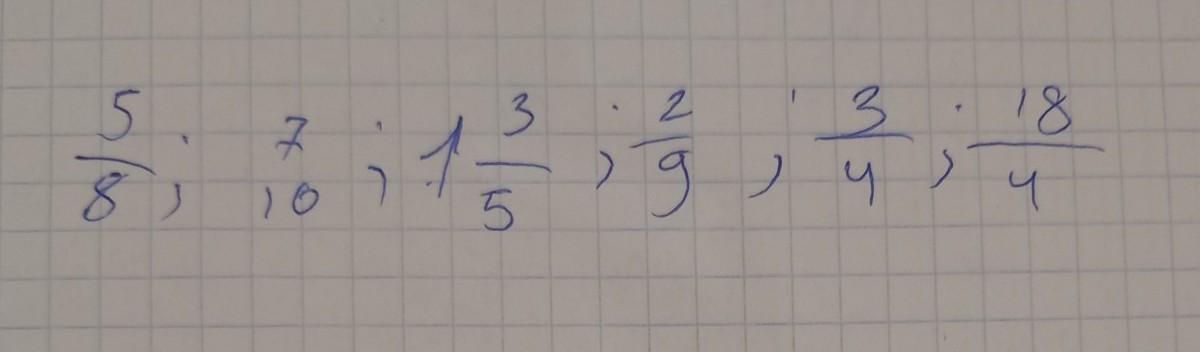 5/8 ; 7/10 ; 1 3/5 ; 2/9 ; 3/4 ; 18/4